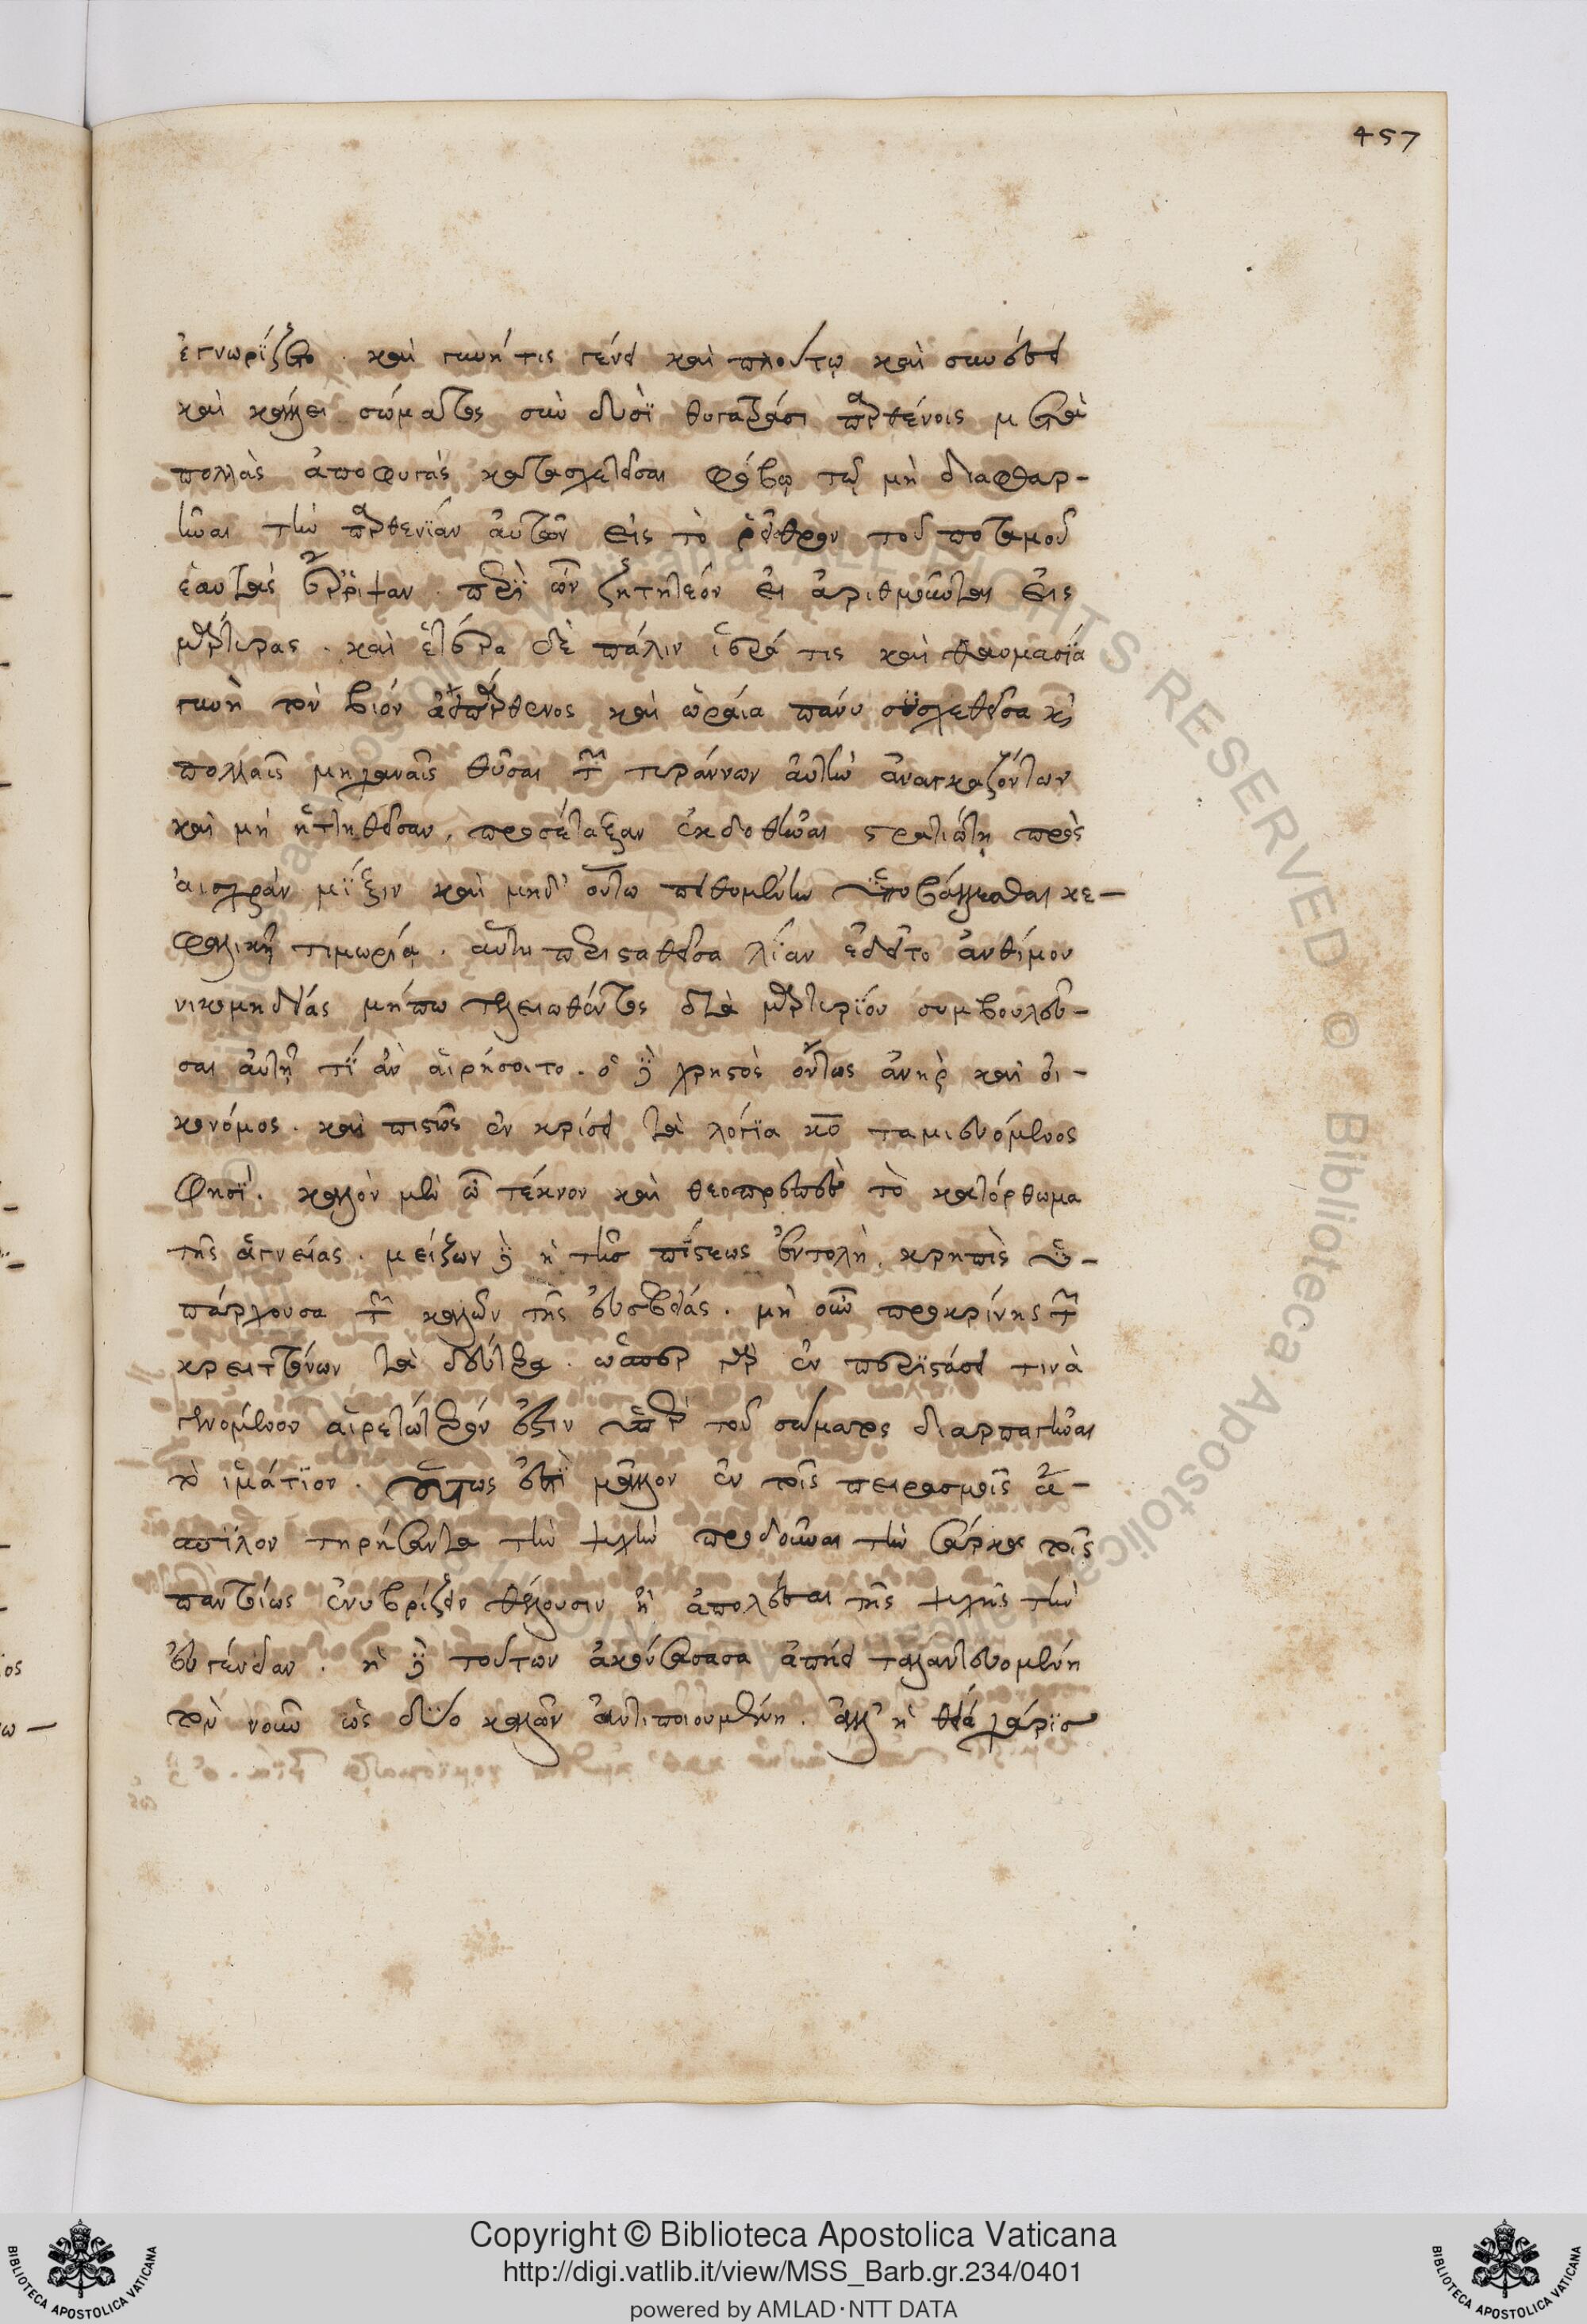 457
ἐγνωρίζετο. καὶ γυνή τις γένει καὶ πλούτῳ καὶ συνέσει
καὶ κάλλει σώματος σὺν δυσὶ θυγατράσι παρθένοις μετὰ
πολλὰς ἀποφυγὰς κατασχεθεῖσαι φόβῳ τοῦ μὴ διαφθαρ-
ῆναι τὴν παρθενίαν αὐτῶν εἰς τὸ ῥεῖθρον τοῦ ποταμοῦ
ἑαυτὰς ἔρριψαν. περὶ ὧν ζητητέον εἰ ἀριθμοῦνται εἰς
μάρτυρας. καὶ ἑτέρα δὲ πάλιν ἱερά τις καὶ θαυμασία
γυνὴ τὸν βίον ἀειπάρθενος καὶ ὡραία πάνυ συσχεθεῖσα καὶ
πολλαῖς μηχαναῖς θῦσαι τῶν τυράννων αὐτὴν ἀναγκαζόντων
καὶ μὴ ἡττηθεῖσαν, προσέταξαν ἐκδοθῆναι στρατιώτῃ πρὸς
αἰσχρὰν μίξιν καὶ μηδ' οὕτω πειθομένην ὑποβάλλεσθαι κε-
φαλικῇ τιμωρίᾳ. αὕτη περιστατηθεῖσα λίαν ἐδεῖτο ἀνθίμου
νικομηδείας μήπω τελειωθέντος διὰ μαρτυρίου συμβουλεῦ-
σαι αὐτῇ τί ἂν αἱρήσοιτο. ὁ δὲ χρηστὸς ὄντως ἀνὴρ καὶ οἰ-
κονόμος. καὶ πιστῶς ἐν κρίσει τὰ λόγια κυ ταμιευόμενος
φησί. καλὸν μὲν ὦ τέκνον καὶ θεοπρεπὲς τὸ κατόρθωμα
τῆς ἁγνείας. μείζων δὲ ἡ τῆς πίστεως ἐντολὴ, κρηπὶς ὑ-
πάρχουσα τῶν καλῶν τῆς εὐσεβείας. μὴ οὖν προκρίνῃς τῶν
κρειττόνων τὰ δεύτερα. ὥσπερ γὰρ ἐν περιστάσει τινὰ
γενόμενον αἱρετώτερόν ἐστιν ὑπὲρ τοῦ σώματος διαρπαγῆναι
τὸ ἱμάτιον. οὕτως ἐστὶ μᾶλλον ἐν τοῖς πειρασμοῖς ἄ-
σπιλον τηρήσαντα τὴν ψυχὴν προδοῦναι τὴν σάρκα τοῖς
παντοίως ἐνυβρίζειν θέλουσιν ἢ ἀπολέσαι τῆς ψυχῆς τὴν
εὐγένειαν. ἡ δὲ τούτων ἀκούσασα ἀπῄει ταλαντευομένη
τὸν νοῦν ὡς δύο καλῶν ἀντιποιουμένη. ἀλλ' ἡ θεία χάρις